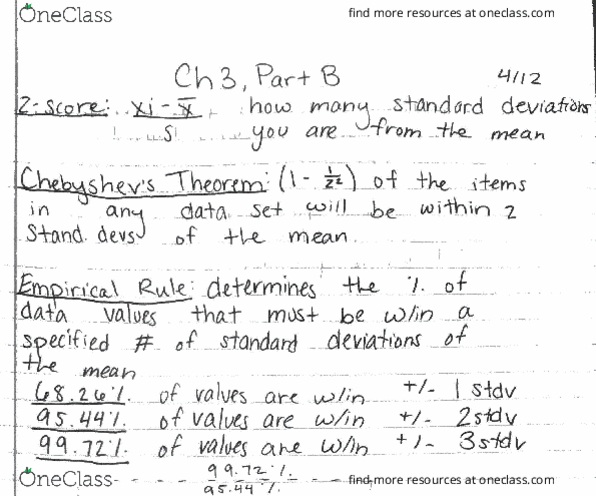 OneClass find more resources at oneclass.com
Ch 3, Part B 4/12
Z-score: xi - x̄ how many standard deviations
s you are from the mean
Chebyshev's Theorem: (1 - 1/z²) of the items
in any data set will be within z
stand. devs of the mean
Empirical Rule: determines the % of
data values that must be w/in a
specified # of standard deviations of
the mean
68.26% of values are w/in +/- 1 stdv
95.44% of values are w/in +/- 2 stdv
99.72% of values are w/in +/- 3 stdv
99.72%
OneClass find more resources at oneclass.com
95.44%